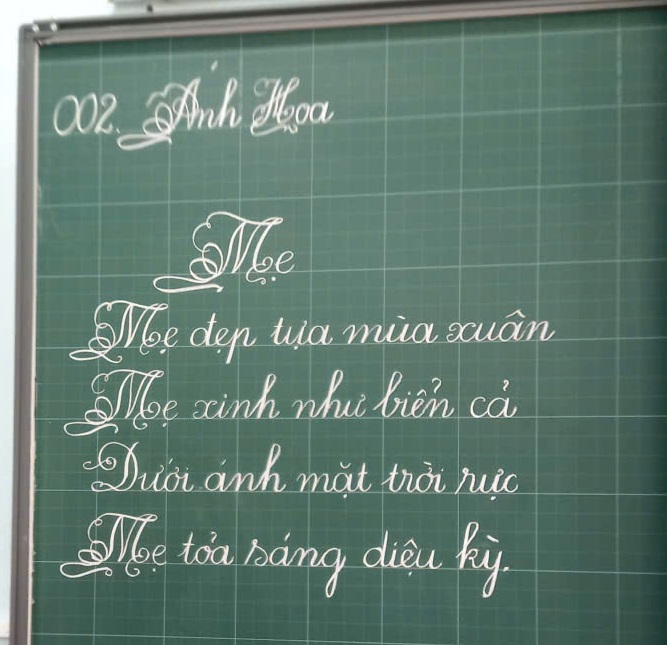 002. Ánh Hoa
Mẹ
Mẹ đẹp tựa mùa xuân
Mẹ xinh như biển cả
Dưới ánh mặt trời rực
Mẹ tỏa sáng diệu kỳ.